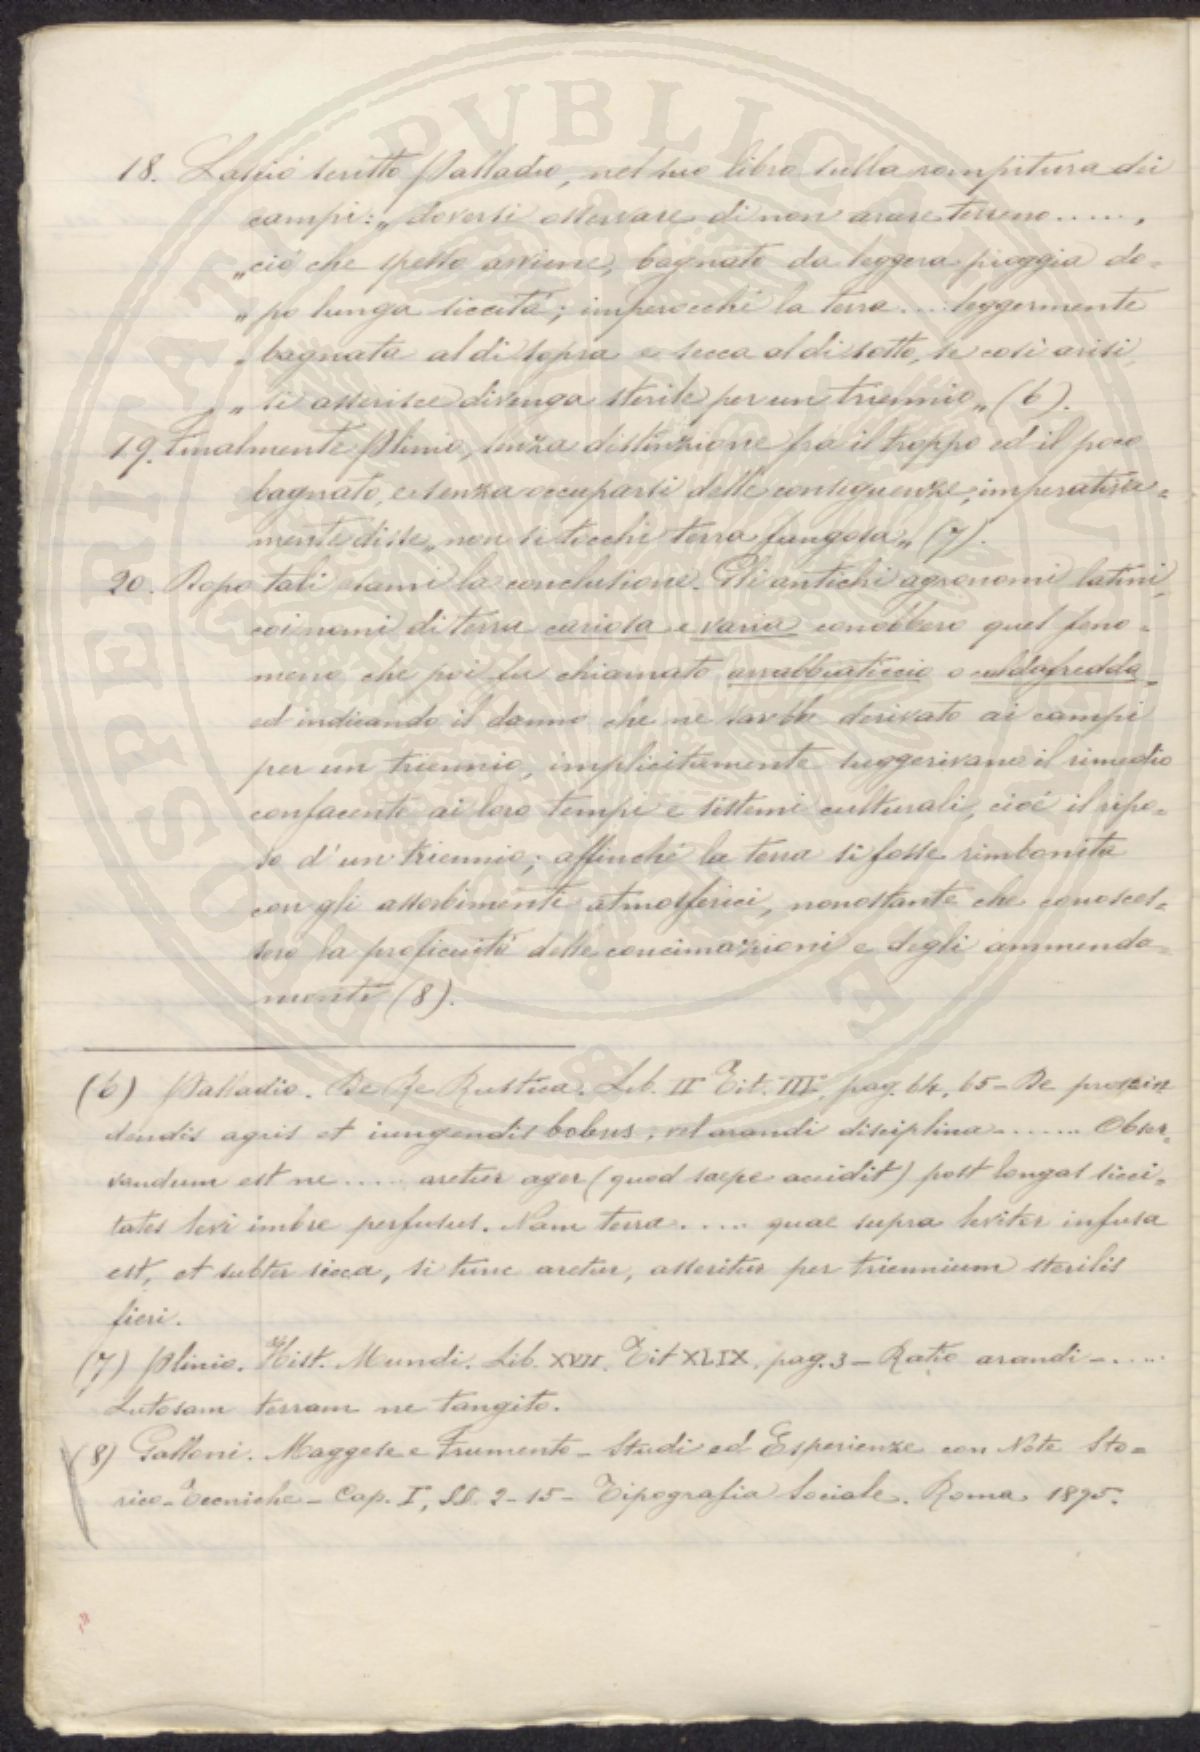 18. Lasciò scritto Palladio, nel suo libro sulla rompitura dei
campi: „doversi osservare di non arare terreno ......,
„ciò che spesso avviene, bagnato da leggera pioggia do=
„po lunga siccità; imperocchè la terra .... leggermente
„bagnata al di sopra e secca al di sotto, se così arisi,
„si asserisce divenga sterile per un triennio„ (6).
19. Finalmente Plinio, senza distinzione fra il troppo ed il poco
bagnato, e senza occuparsi delle conseguenze, imperativa=
mente disse „non si tocchi terra fangosa„ (7).
20. Dopo tali esami la conclusione. Gli antichi agronomi latini,
coi nomi di terra cariosa e varia conobbero quel feno=
meno che poi fu chiamato arrabbiaticcio o caldafredda
ed indicando il danno che ne sarebbe derivato ai campi
per un triennio, implicitamente suggerivano il rimedio
confacente ai loro tempi e sistemi culturali, cioè il ripo=
so d'un triennio; affinchè la terra si fosse rimbonita
con gli assorbimenti atmosferici, nonostante che conosces=
sero la proficuità delle concimazioni e degli ammenda=
menti (8).
(6) Palladio. De Re Rustica. Lib. II Tit. III, pag. 64, 65 - De proscin
dendis agris et iungendis bobus, vel arandi disciplina - ...... Obser=
vandum est ne ..... aretur ager (quod saepe accidit) post longas sicci=
tates levi imbre perfusus. Nam terra ..... quae supra leviter infusa
est, et subter sicca, si tunc aretur, asseritur per triennium sterilis
fieri.
(7) Plinio. Hist. Mundi. Lib. XVII. Tit XLIX, pag. 3 - Ratio arandi - .....
Lutosam terram ne tangito.
(8) Galloni. Maggese e Frumento - Studi ed Esperienze con Note Sto=
rico-Tecniche - Cap. I, §§. 2-15 - Tipografia Sociale. Roma 1895.